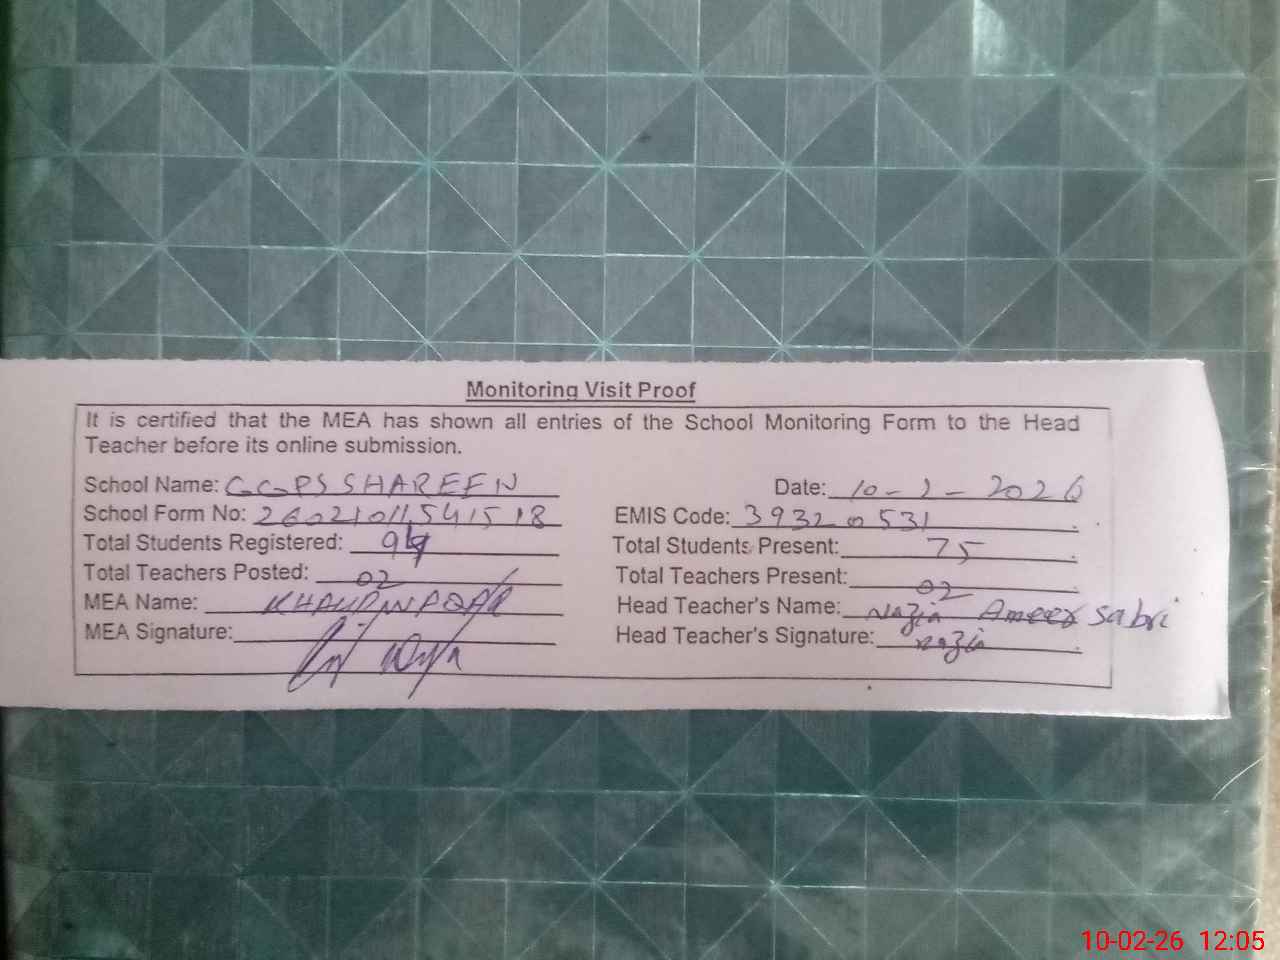 Monitoring Visit Proof
It is certified that the MEA has shown all entries of the School Monitoring Form to the Head
Teacher before its online submission.
School Name: GGPS SHAREEN Date: 10-2-2026
School Form No: 260210115415 18 EMIS Code: 39320531
Total Students Registered: Total Students Present: 75
Total Teachers Posted: 02 Total Teachers Present: 02
MEA Name: Head Teacher's Name: Nazia Ameer Sabri
MEA Signature: Head Teacher's Signature: nazia
10-02-26 12:05